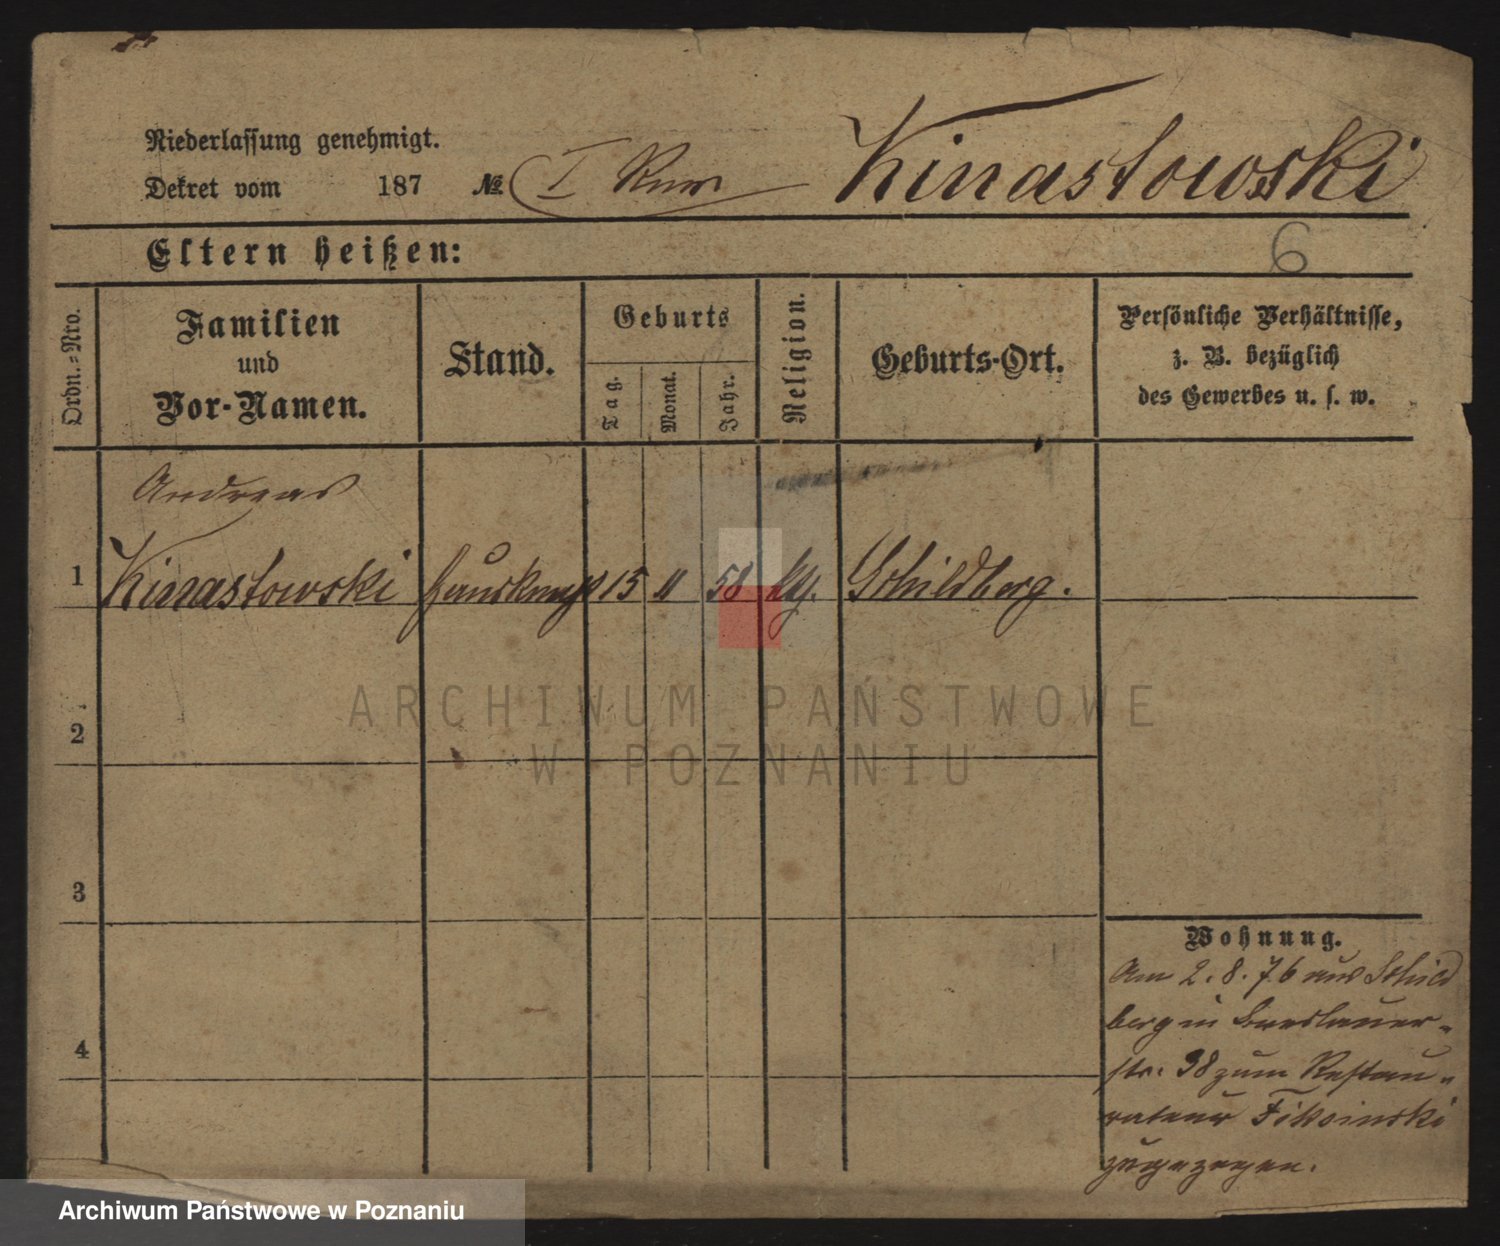 Niederlassung genehmigt.
Dekret vom 187 № I Kinastowski
Eltern heißen:
6
Ordn.-Nro.
Familien
und
Vor-Namen.
Stand.
Geburts
Tag.
Monat.
Jahr.
Religion.
Geburts-Ort.
Persönliche Verhältnisse,
z. B. bezüglich
des Gewerbes u. s. w.
Andreas
1 Kinastowski 15 11 58 Schildberg.
2
3
4
Wohnung.
Am 2. 8. 76 aus Schild
berg in Breslauer-
str. 38 zum Restau-
rateur
zugezogen.
ARCHIWUM PAŃSTWOWE
W POZNANIU
Archiwum Państwowe w Poznaniu